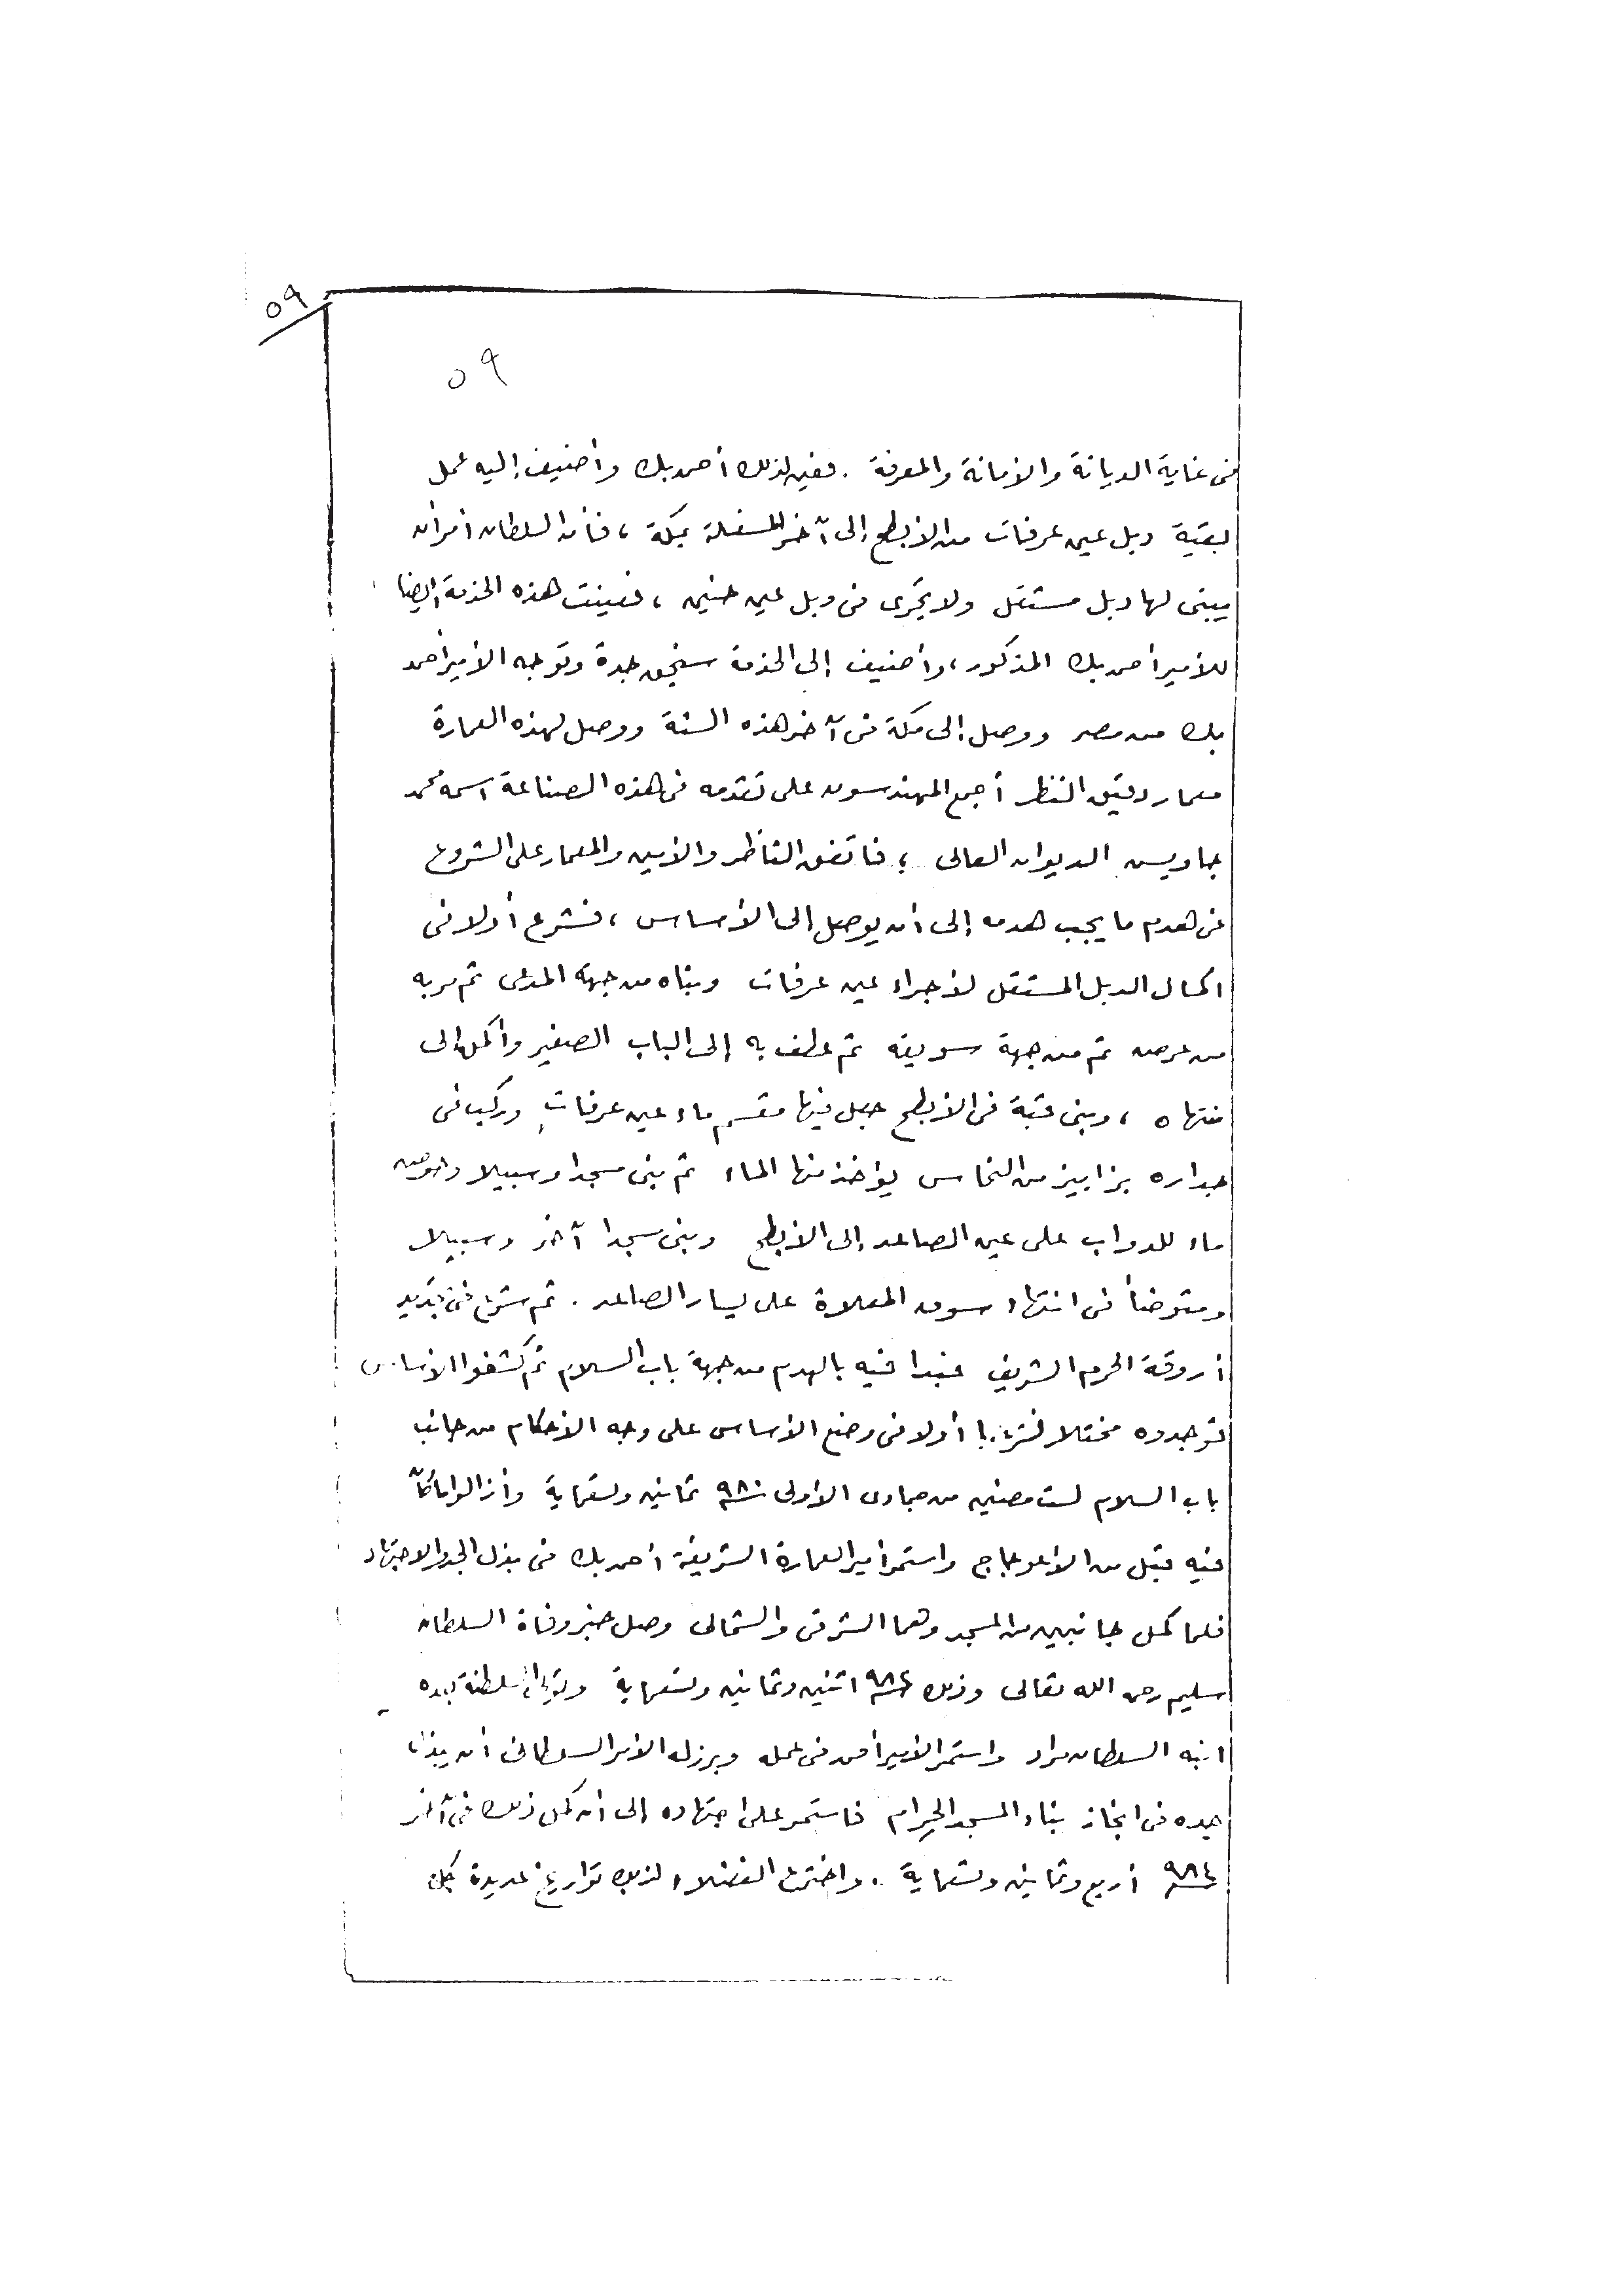 ٥٩
٥٩
فى غاية الديانة والأمانة والمعرفة . فعين لذلك أحمد بك وأضيف إليه عمل
بقية دبل عين عرفات من الأبطح إلى آخر المسفلة بمكة ، فأن السلطان أمر أن
يبنى لها دبل مستقل ولا يجرى فى دبل عين حنين ، فعينت هذه الخدمة أيضا
للأمير أحمد بك المذكور ، وأضيف إلى الخدمة سنجق جدة وتوجه الأمير أحمد
بك من مصر ووصل إلى مكة فى آخر هذه السنة ووصل لهذه العمارة
معمار دقيق النظر أجمع المهندسون على تقدمه فى هذه الصناعة اسمه محمد
جاويس الديوان العالى ؛ فاتفق الناظر والأمين والمعمار على الشروع
فى هدم ما يجب هدمه إلى أن يوصل إلى الأساس ، فشرع أولا فى
اكمال الدبل المستقل لأجراء عين عرفات وبناه من جهة المدعى ثم مر به
من عرضه ثم من جهة سويقه ثم عطف به إلى الباب الصغير وأكمل إلى
منتهاه ، وبنى قبة فى الأبطح جعل فيها مقسم ماء عين عرفات وركب فى
جداره بزابيز من النحاس يؤخذ منها الماء ثم بنى مسجدا وسبيلا وحوض
ماء للدواب على عين الصاعد إلى الأبطح وبنى مسجدا آخر وسبيلا
ومتوضأ فى انتهاء سوق المعلاة على يسار الصاعد . ثم شرع فى تجديد
أروقة الحرم الشريف فبدا فيه بالهدم من جهة باب السلام ثم كشفوا الأساس
فوجدوه مختلا فشرعوا أولا فى وضع الأساس على وجه الأحكام من جانب
باب السلام لست مضين من جمادى الأولى سنة ٩٨٠ ثمانين وتسعماية وأزالوا ما كان
فيه قبل من الأعوجاج واستمر أمير العمارة الشريفة أحمد بك فى بذل الجد والاجتهاد
فلما كمل جانبين من المسجد وهما الشرقى والشمالى وصل خبر وفاة السلطان
سليم رحمه الله تعالى وذلك سنة ٩٨٢ اثنين وثمانين وتسعماية وتولى السلطنة بعده
ابنه السلطان مراد واستمر الأمير أحمد فى عمله وبرز له الأمر السلطانى أن يبذل
جهده فى انجاز بناء المسجد الحرام فاستمر على اجتهاده إلى أن كمل ذلك فى آخر
سنة ٩٨٤ أربع وثمانين وتسعماية . واخترع الفضلاء لذلك تواريخ عديدة